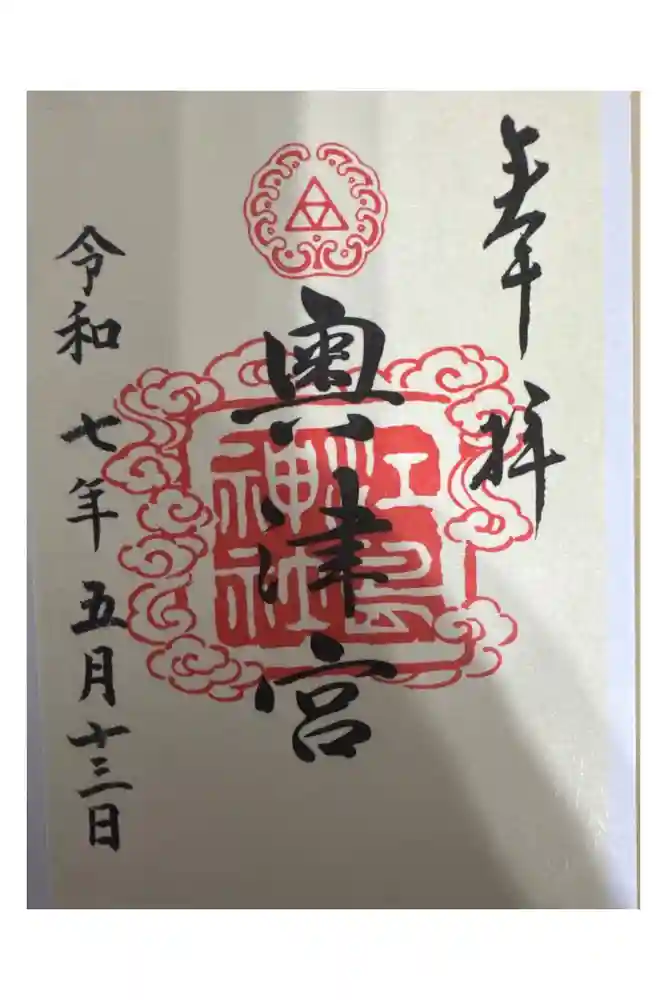 奉拝
奥津宮
江島
神社
令和七年五月十三日